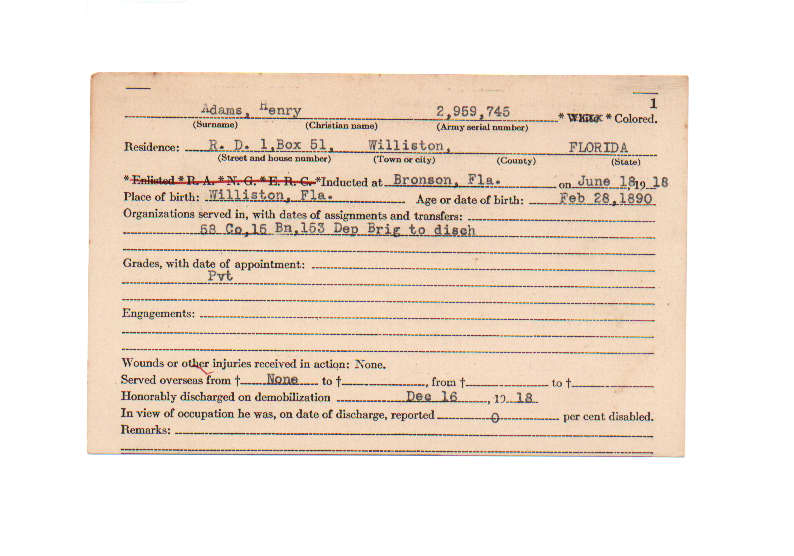 1
Adams, Henry 2,959,745 * White * Colored.
(Surname) (Christian name) (Army serial number)
Residence: R. D. 1,Box 51, Williston, FLORIDA
(Street and house number) (Town or city) (County) (State)
*Enlisted *R. A. *N. G. *E. R. C. *Inducted at Bronson, Fla. on June 18,19 18
Place of birth: Williston, Fla. Age or date of birth: Feb 28,1890
Organizations served in, with dates of assignments and transfers:
68 Co,15 Bn,153 Dep Brig to disch
Grades, with date of appointment:
Pvt
Engagements:
Wounds or other injuries received in action: None.
Served overseas from † None to †, from † to †
Honorably discharged on demobilization Dec 16, 19 18
In view of occupation he was, on date of discharge, reported 0 per cent disabled.
Remarks: